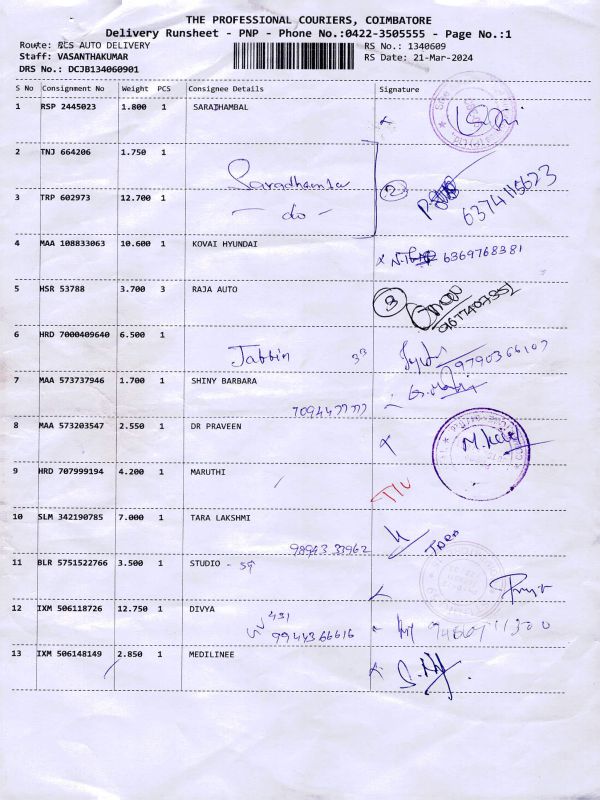 THE PROFESSIONAL COURIERS, COIMBATORE
Delivery Runsheet - PNP - Phone No.:0422-3505555 - Page No.:1
Route: RCS AUTO DELIVERY RS No.: 1340609
Staff: VASANTHAKUMAR RS Date: 21-Mar-2024
DRS No.: DCJB134060901
S No Consignment No Weight PCS Consignee Details Signature
1 RSP 2445023 1.800 1 SARADHAMBAL
2 TNJ 664206 1.750 1
Saradhamba 2
3 TRP 602973 12.700 1 - do - 6374115623
4 MAA 108833063 10.600 1 KOVAI HYUNDAI
6369768381
5 HSR 53788 3.700 3 RAJA AUTO 3
6 HRD 7000409640 6.500 1
Jabbin 33
7 MAA 573737946 1.700 1 SHINY BARBARA
8 MAA 573203547 2.550 1 DR PRAVEEN
9 HRD 707999194 4.200 1 MARUTHI
10 SLM 342190785 7.000 1 TARA LAKSHMI
98943 33962 TARA
11 BLR 5751522766 3.500 1 STUDIO - 59
12 IXM 506118726 12.750 1 DIVYA
431
9944366616
13 IXM 506148149 2.850 1 MEDILINEE